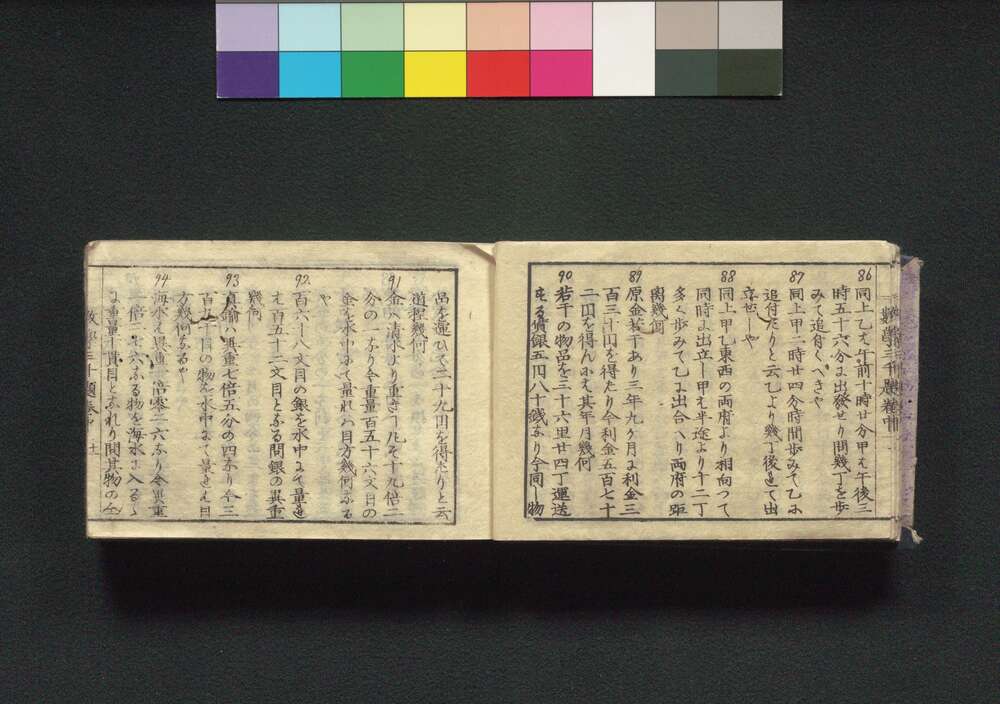 86
同上乙ハ午前十時廿分甲ハ午後三
時五十六分に出發せり問幾丁を歩
みて追付くべきや
87
同上甲二時廿四分時間歩みて乙に
追付たりと云乙より幾丁後れて出
立せしや
88
同上甲乙東西の両府より相向つて
同時に出立し甲ハ半途より十二丁
多く歩みて乙に出合へり両府の距
離幾何
89
原金若干あり三年九ヶ月に利金三
百三十円を得たり今利金五百七十
二円を得んにハ其年月幾何
90
若干の物品を三十六里廿四丁運送
する賃銀五円八十銭なり今同し物
品を運ひて二十九円を得たりと云
道程幾何
91
金ハ清水より重き丁凡そ十九倍二
分の一なり今重量百五十六文目の
金を水中にて量れハ目方幾何なる
や
92
百六十八文目の銀を水中にて量れ
ハ百五十二文目となる問銀の異重
幾何
93
真鍮ハ異重七倍五分の四なり今三
百九十目の物を水中にて量れハ目
方幾何なるや
94
海水ハ異重一倍零二六なり今異重
一倍二七六なる物を海水に入るゝ
に重量十貫目となれり問其物の全